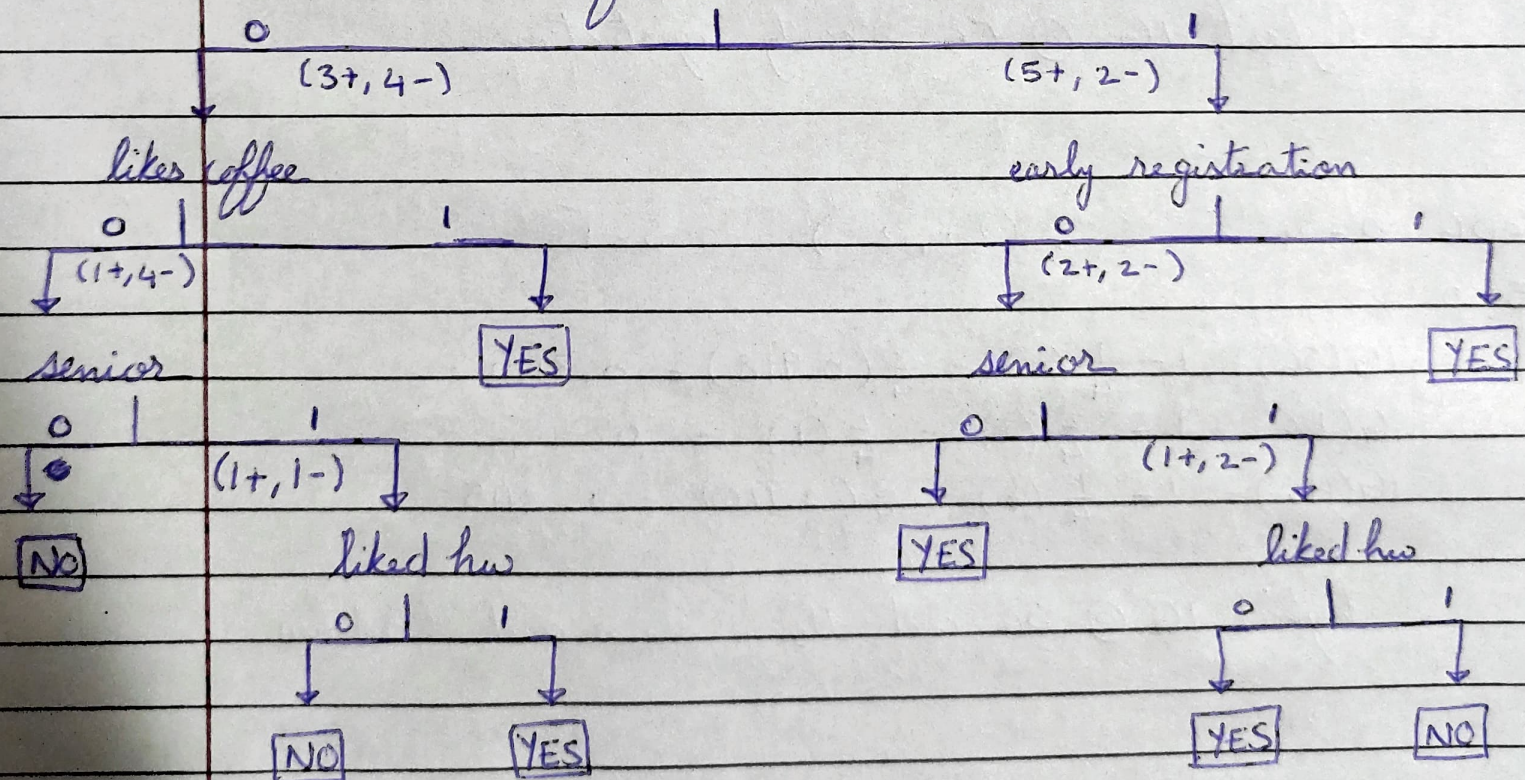 0 1
(3+, 4-) (5+, 2-)
likes coffee early registration
0 1 0 1
(1+, 4-) (2+, 2-)
senior YES senior YES
0 1 0 1
(1+, 1-) (1+, 2-)
NO liked hw YES liked hw
0 1 0 1
NO YES YES NO